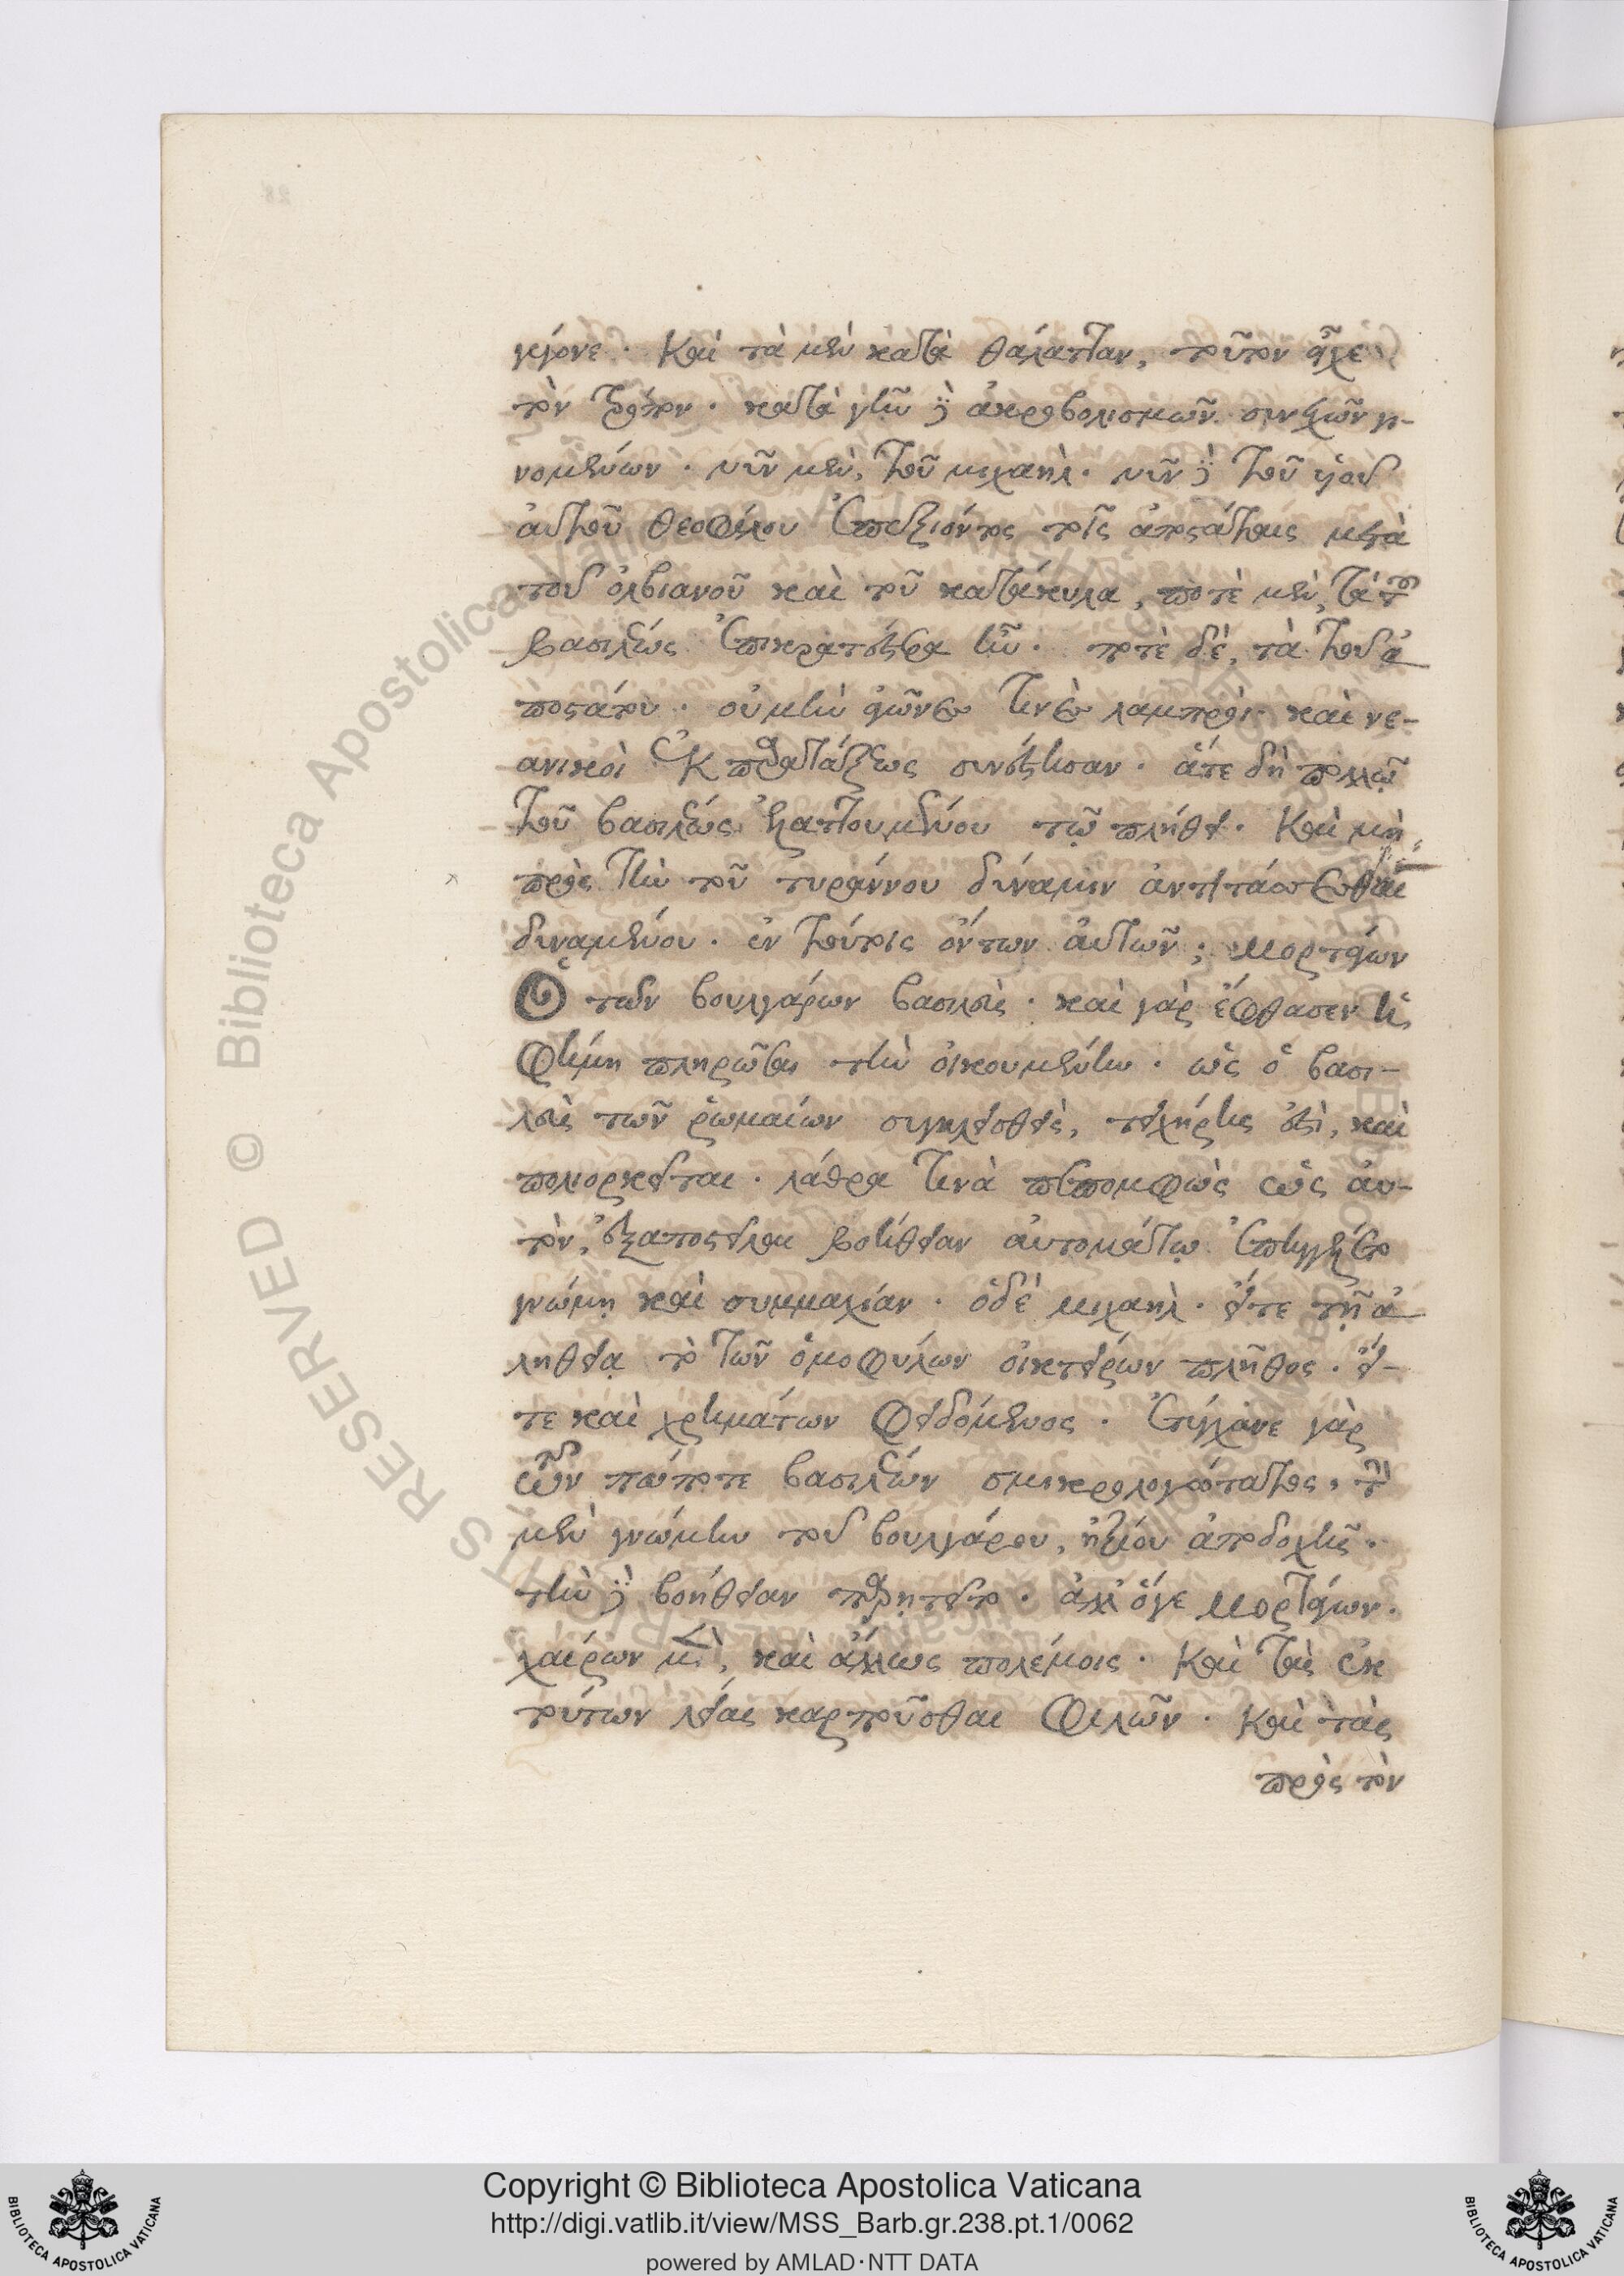 γέγονε. Καὶ τὰ μὲν κατὰ θάλατταν, τοῦτον εἶχε
τὸν τρόπον. κατὰ γῆν δὲ ἀκροβολισμῶν συνεχῶν γι-
νομένων. νῦν μὲν, τοῦ μιχαὴλ. νῦν δὲ τοῦ υἱοῦ
αὐτοῦ θεοφίλου ἐπεξιόντος τοῖς ἀποστάταις μετὰ
τοῦ ὀλβιανοῦ καὶ τοῦ κατάκυλα, ποτὲ μὲν, τὰ τοῦ
βασιλέως ἐπικρατέστερα ἦν. ποτὲ δὲ, τὰ τοῦ ἀ
ποστάτου. οὐ μὴν ἀγῶνες τινὲς λαμπροὶ καὶ νε-
ανικοὶ ἐκ παρατάξεως συνέστησαν. ἅτε δὴ πολλῷ
τοῦ βασιλέως ἡττουμένου τῷ πλήθει. Καὶ μὴ
πρὸς τὴν τοῦ τυράννου δύναμιν ἀντιτάττεσθαι
δυναμένου. ἐν τούτοις ὄντων αὐτῶν; μορτάγων
Ὁ τῶν βουλγάρων βασιλεὺς. καὶ γὰρ ἔφθασεν ἡ
φήμη πληρῶσαι τὴν οἰκουμένην. ὡς ὁ βασι-
λεὺς τῶν ῥωμαίων συγκλεισθεὶς, τειχήρης ἐστὶ, καὶ
πολιορκεῖται. λάθρα τινὰ πεπομφὼς ὡς αὐ-
τὸν, ἐξαποστεῖλαι βοήθειαν αὐτομάτῳ ἐπηγγέλλετο
γνώμῃ καὶ συμμαχίαν. ὁ δὲ μιχαὴλ. εἴτε τῇ ἀ
ληθείᾳ τὸ τῶν ὁμοφύλων οἰκτείρων πλῆθος. εἴ-
τε καὶ χρημάτων φειδόμενος. ἐτύγχανε γὰρ
τῶν πώποτε βασιλέων σμικρολογώτατος, τὴν
μὲν γνώμην τοῦ βουλγάρου, ἠξίου ἀποδοχῆς.
τὴν δὲ βοήθειαν παρῃτεῖτο. ἀλλ' ὅγε μορτάγων.
χαίρων μὲν, καὶ ἄλλως πολέμοις. Καὶ τὰς ἐκ
τούτων λείας καρποῦσθαι φιλῶν. Καὶ τὰς
πρὸς τὸν